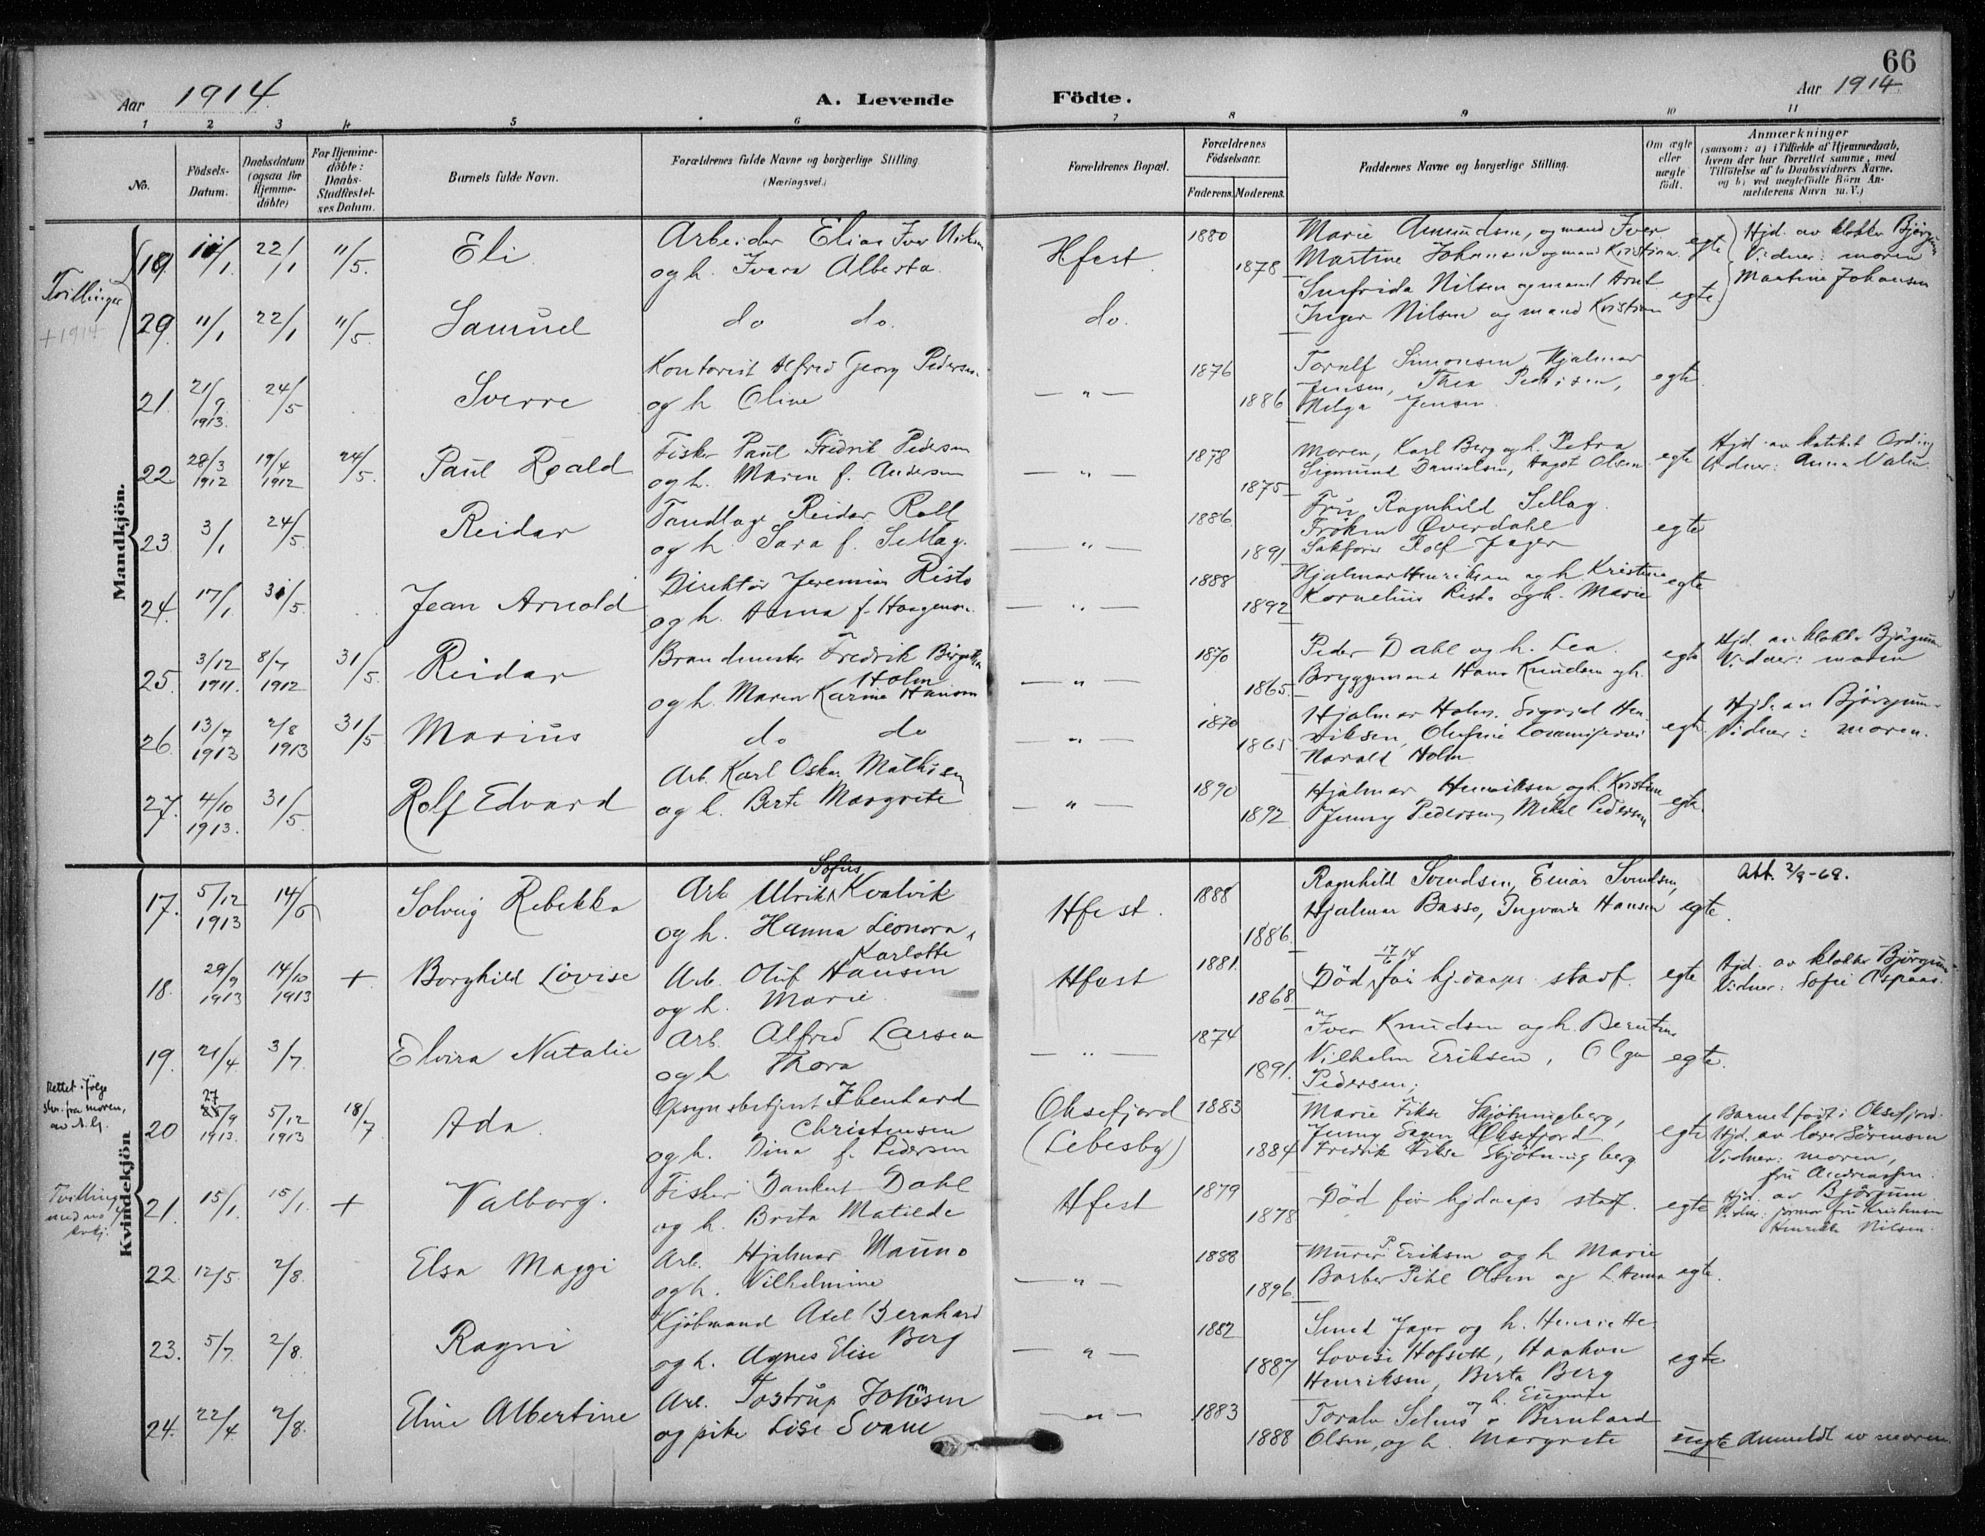 66
Aar 1914.
A. Levende Födte.
Aar 1914
1 2 3 4 5 6 7 8 9 10 11
No.
Födsels-Datum.
Daabsdatum (ogsaa for Hjemme-döbte)
For Hjemme-döbte: Daabs-Stadfæstel-ses Datum.
Barnets fulde Navn.
Forældrenes fulde Navne og borgerlige Stilling (Næringsvei.)
Forældrenes Bopæl.
Forældrenes Födselsaar.
Faderens. Moderens.
Faddernes Navne og borgerlige Stilling.
Om ægte eller uægte födt.
Anmærkninger (saasom: a) i Tilfælde af Hjemmedaab, hvem der har forrettet samme, med Tilföielse af to Daabsvidners Navne. og b) ved uægtefödte Börn An-melderens Navn m. V.)
Mandkjön.
Tvillinger
+1914
19. 11/1. 22/1 11/5. Eli Arbeider Elias Iver Nilsen
og h. Ivara Alberta. Hfest. 1880 1878
Marie Amundsen, og mand Iver
Martine Johansen og mand Kristian egte
Hjd. av klokker Bjørgum
Vidner: moren
Martine Johansen
29. 11/1 22/1 11/5. Samuel do do. do.
Surfrida Nilsen og mand Arnt
Inger Nilsen og mand Kristian egte
21. 21/9 1913. 24/5 Sverre Kontorist Alfred Georg Pedersen
og h Oline — " — 1876 1886
Toralf Simonsen, Hjalmar
Jensen, Thea Pedersen,
Helga Jensen. egte.
22 28/3 1912 19/4 1912 24/5. Paul Roald Fisker Paul Fredrik Pedersen
og h. Maren f. Andersen — " — 1878 1875
Moren, Karl Berg og h. Petra
Sigmund Danielsen, Aagot Olsen egte
Hjd. av katiket Ording
Vidner: Anna
23 3/1 24/5. Reidar Tandlæge Reidar Roll
og h. Sara f. Sellæg. — " — 1886. 1891
Fru Ragnhild Sellæg.
Frøken Øverdahl
Sakfører Rolf Jager egte
24. 17/1. 31/5. Jean Arnold Direktør Jeremias Risto
og h. Anna f. Haagensen. — " — 1888 1892
Hjalmar Henriksen og h Kristine
Kornelius Risto og h. Marie egte
25. 3/12 1911. 8/4 1912 31/5. Reidar Brandmester Fredrik
Holm
og h. Maren Karine Hansen — " — 1870 1865.
Peder Dahl og h. Lea.
Bryggemand Hans Knudsen og h. egte
Hjd. av klokker Bjørgum
Vidner: moren
26. 13/7 1913 2/8 1913 31/5 Marius do do — " — 1870 1865
Hjalmar Holm. Sigrid Hen-
riksen, Olufine
Harald Holm egte
Hjd. av Bjørgum.
Vidner: moren.
27. 4/10 1913. 31/5. Rolf Edvard Arb. Karl Oskar Mathisen
og h. Berte Margrete — " — 1890 1892
Hjalmar Henriksen og h. Kristine
Jenny Pedersen, Mikal Pedersen egte.
Kvindekjön
17. 5/12 1913 14/6 Solveig Rebekka Sofus
Arb Ulrik Kvalvik
og h. Hanna Leonora
Karlotte Hfest. 1888 1886.
Ragnhild Svendsen, Einar Svendsen,
Hjalmar Basso, Ingvarda Hansen egte.
Att. 2/9-69.
18. 29/9 1913 14/10 1913 + Borghild Lovise Arb. Oluf Hansen
og h. Marie. Hfest 1881. 1868
17/6 14
Død før hj.daaps stadf. egte
Hjd. av klokker Bjørgum
Vidner: Sofie Aspaas.
19. 21/4 3/7. Elvira Natalie Arb. Alfred Larsen
og h. Thora — " — 1874 1891.
Iver Knudsen og h. Berntine
Vilhelm Eriksen, Olga
Pedersen; egte.
Rettet i følge
skr. fra moren,
20 27/9 1913. 5/12 1913 18/7 Ada. Opsynsbetjent Ebenhard
Christensen
og h. Dina f. Pedersen Oksefjord
(Lebesby) 1883 1884
Marie Fikse Skjøtningberg,
Jenny Sagen Oksefjord
Fredrik Fikse Skjøtningberg egte
Barnet født i Oksefjord.
Hjd. av lærer Sørensen
Vidner: moren,
fru Andreassen.
Tvilling
med no
21. 15/1. 15/1. + Valborg. Fisker Dankert Dahl
og h. Brita Matilde Hfest 1879 1878
Død før hjdaaps stadf. egte
Hjd. av Bjørgum.
Vidner: jormor fru Kristensen
Henrikke Nilsen.
22 12/5. 2/8. Elsa Maggi Arb. Hjalmar Mauno
og h. Vilhelmine — " — 1888 1896.
Murer P. Eriksen og h Marie
Barber Pihl Olsen og h. Anna egte.
23. 5/7. 2/8. Ragni Kjøbmand Axel Bernhard
Berg
og h. Agnes Elise — " — 1882 1887
Smed Jager og h. Henriette.
Lovise Hofseth, Haakon
Henriksen, Berta Berg egte
24. 22/4 2/8. Eline Albertine Arb. Tostrup Johnsen
og pike Lise Svane — " — 1883 1888
og h. Eugenie
Toralv Selnes & Bernhard
Olsen, og h. Margrete uegte Anmeldt av moren.